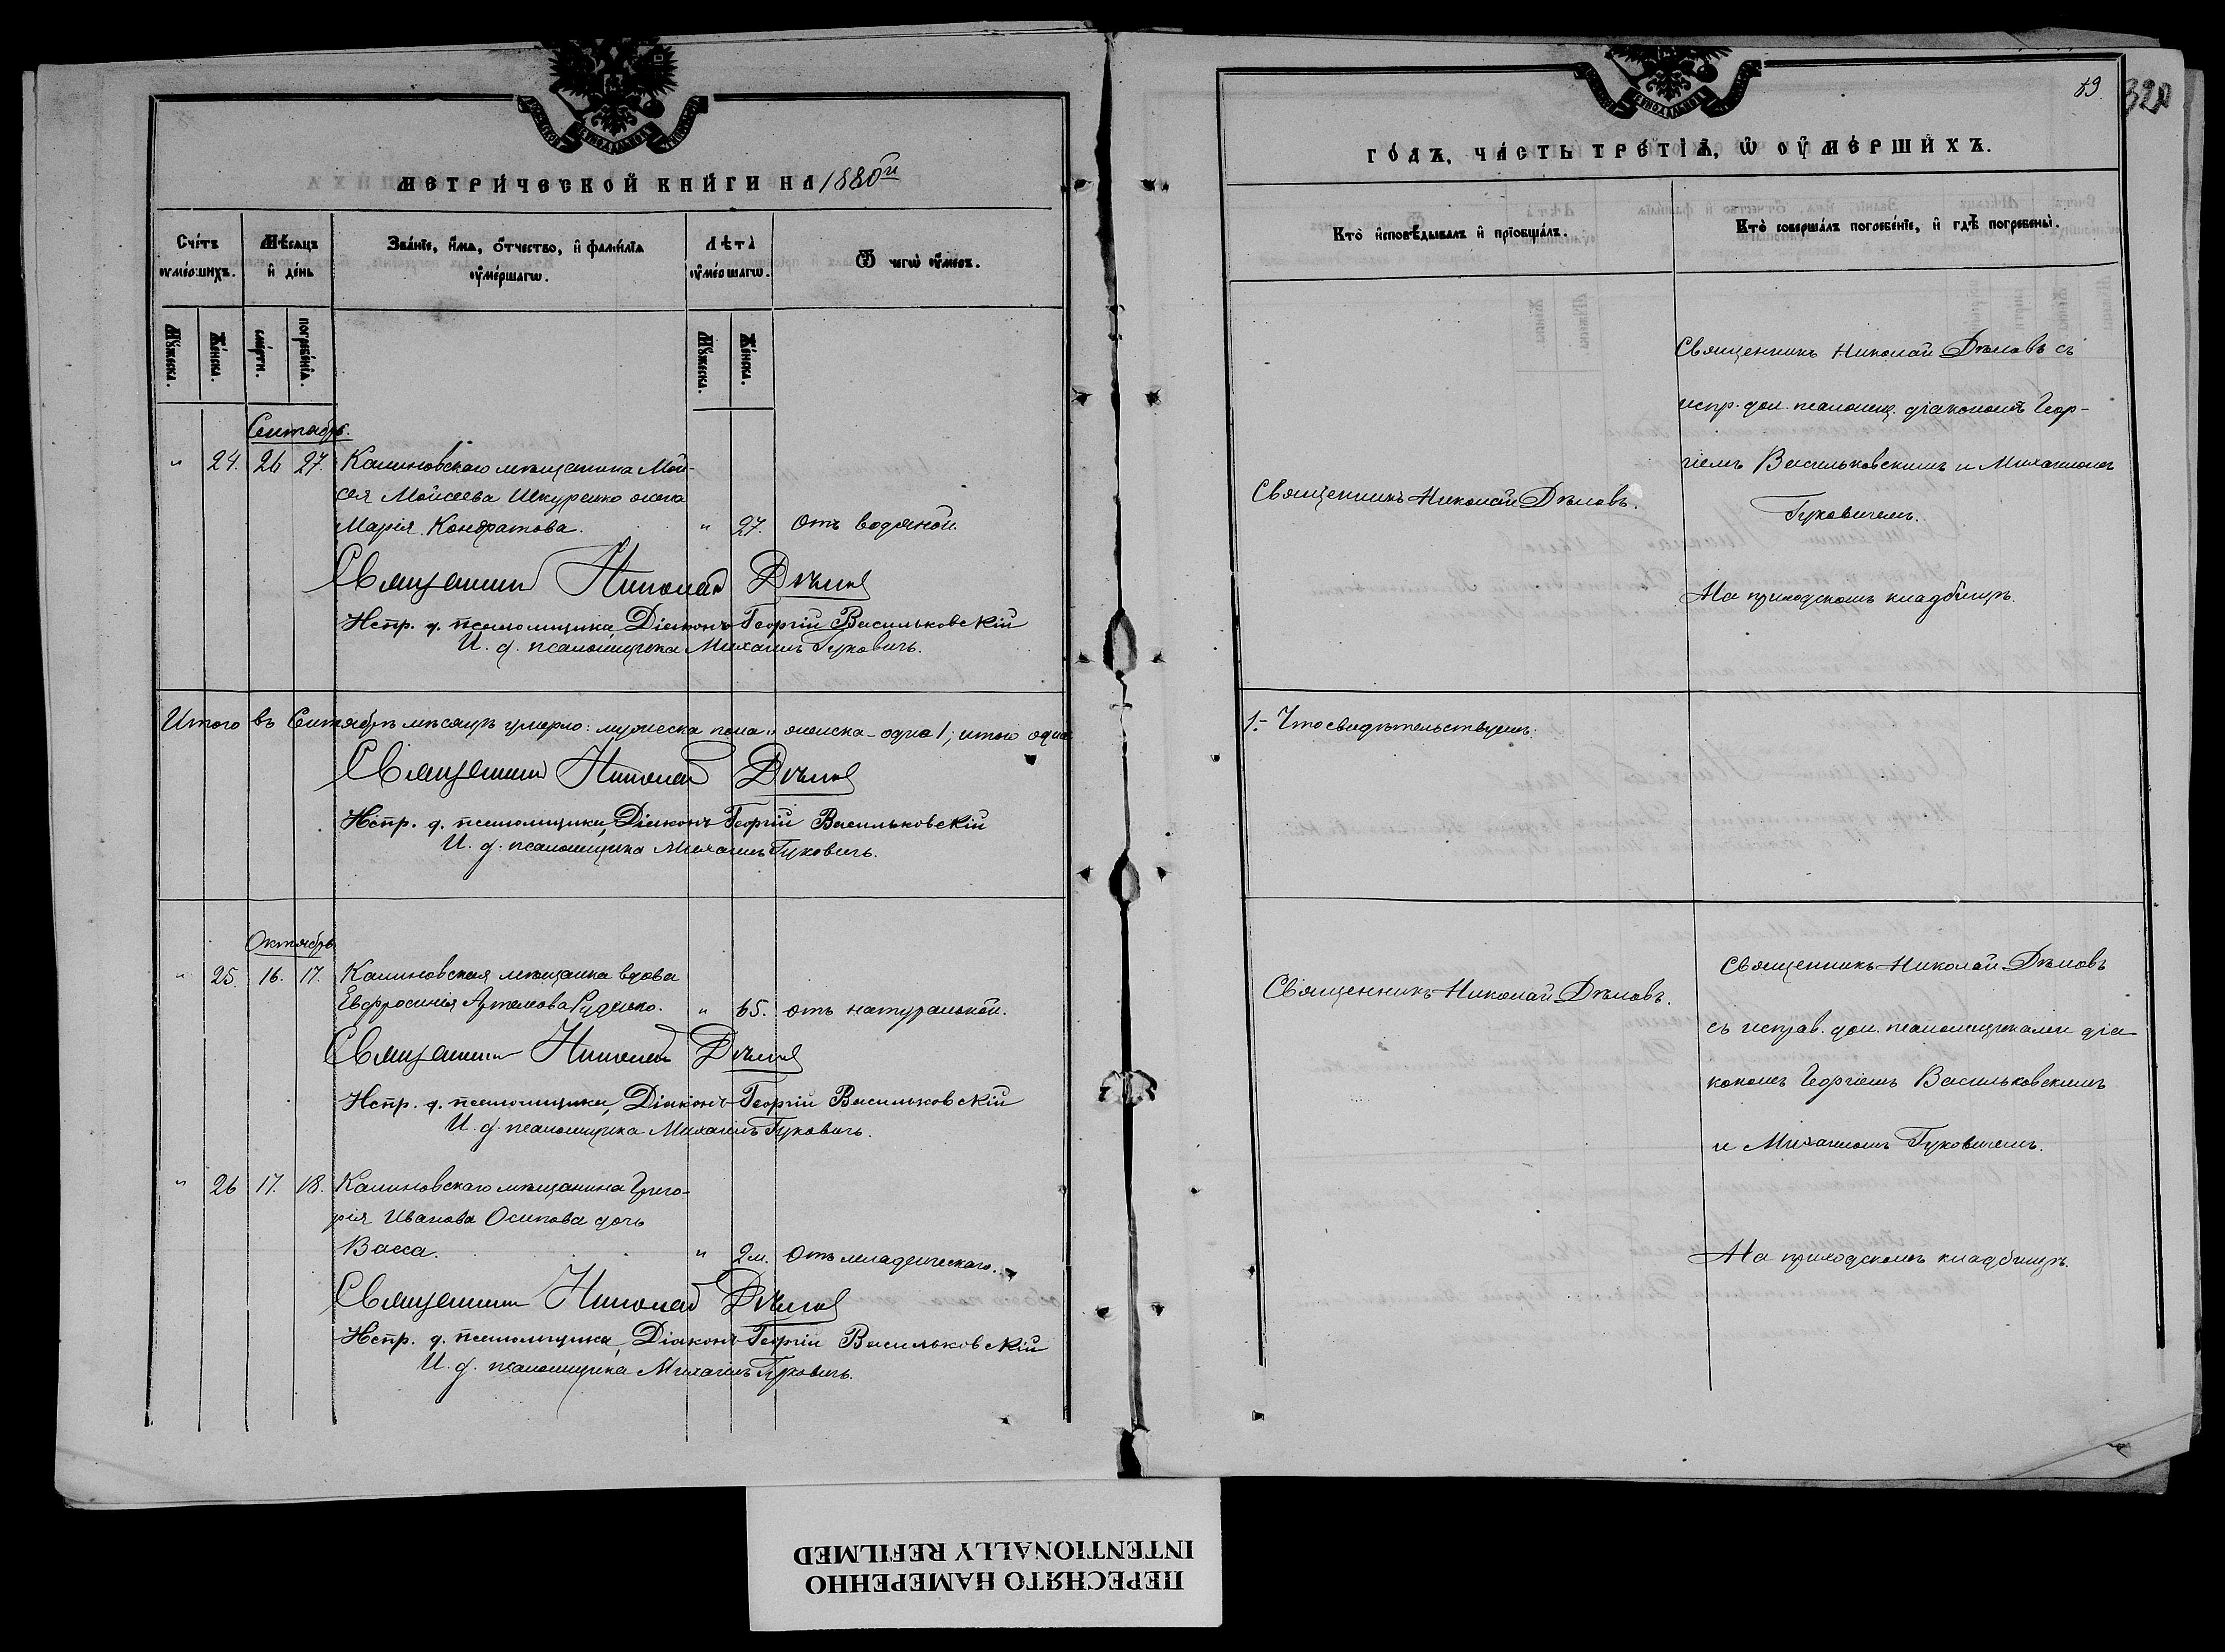 МЕТРИ́ЧЕСКОЙ КНИ́ГИ НА 1880й
Сче́тъ оуме́ршихъ.
Мѣ́сяцъ и де́нь
Зва́нїе, и́мя, о́тчество, и фами́лїя оуме́ршагѡ.
Лѣта̀ оуме́ршагѡ.
Ѿ чегѡ̀ оу́меръ.
Му́жеска.
Же́нска.
сме́рти.
погребе́нїя.
Му́жеска.
Же́нска.
Сентябрь.
" 24. 26 27. Калиновскаго мѣщанина Мой-
сея Мойсеева Шкуренко жена
Марія Кондратова. " 27. Отъ водяной.
Священникъ Николай Дѣловъ
Испр. д. псаломщика, Діаконъ Георгій Васильковскій
И. д. псаломщика Михаилъ Гуковичъ.
Итого въ Сентябрѣ мѣсяцѣ умерло: мужеска пола " женска – одна 1, итого одна
Священникъ Николай Дѣловъ
Испр. д. псаломщика, Діаконъ Георгій Васильковскій
И. д. псаломщика Михаилъ Гуковичъ.
Октябрь
" 25. 16. 17. Калиновская мѣщанка вдова
Евфросинія Артемова Руденко. " 65. отъ натуральной.
Священникъ Николай Дѣловъ
Испр. д. псаломщика, Діаконъ Георгій Васильковскій
И. д. псаломщика Михаилъ Гуковичъ.
" 26 17. 18. Калиновскаго мѣщанина Григо-
рія Иванова Осипова дочь
Васса. " 2 м. Отъ младенческаго.
Священникъ Николай Дѣловъ
Испр. д. псаломщика, Діаконъ Георгій Васильковскій
И. д. псаломщика Михаилъ Гуковичъ.
89.
ГО́ДЪ, ЧА́СТЬ ТРЕ́ТІЯ, Ѡ ОУМЕ́РШИХЪ.
Кто̀ исповѣ́дывалъ и прїобща́лъ.
Кто̀ соверша́лъ погребе́нїе, и гдѣ̀ погребены̀.
Священникъ Николай Дѣловъ.
Священникъ Николай Дѣловъ съ
испр. дол. псаломщ. діакономъ Геор-
гіемъ Васильковскимъ и Михаиломъ
Гуковичемъ.
На приходскомъ кладбищѣ.
1. – Что свидѣтельствуемъ:
Священникъ Николай Дѣловъ.
Священникъ Николай Дѣловъ
съ исправ. дол. псаломщиками діа-
кономъ Георгіемъ Васильковскимъ
и Михаиломъ Гуковичемъ.
На приходскомъ кладбищѣ.
ПЕРЕСНЯТО НАМЕРЕННО
INTENTIONALLY REFILMED